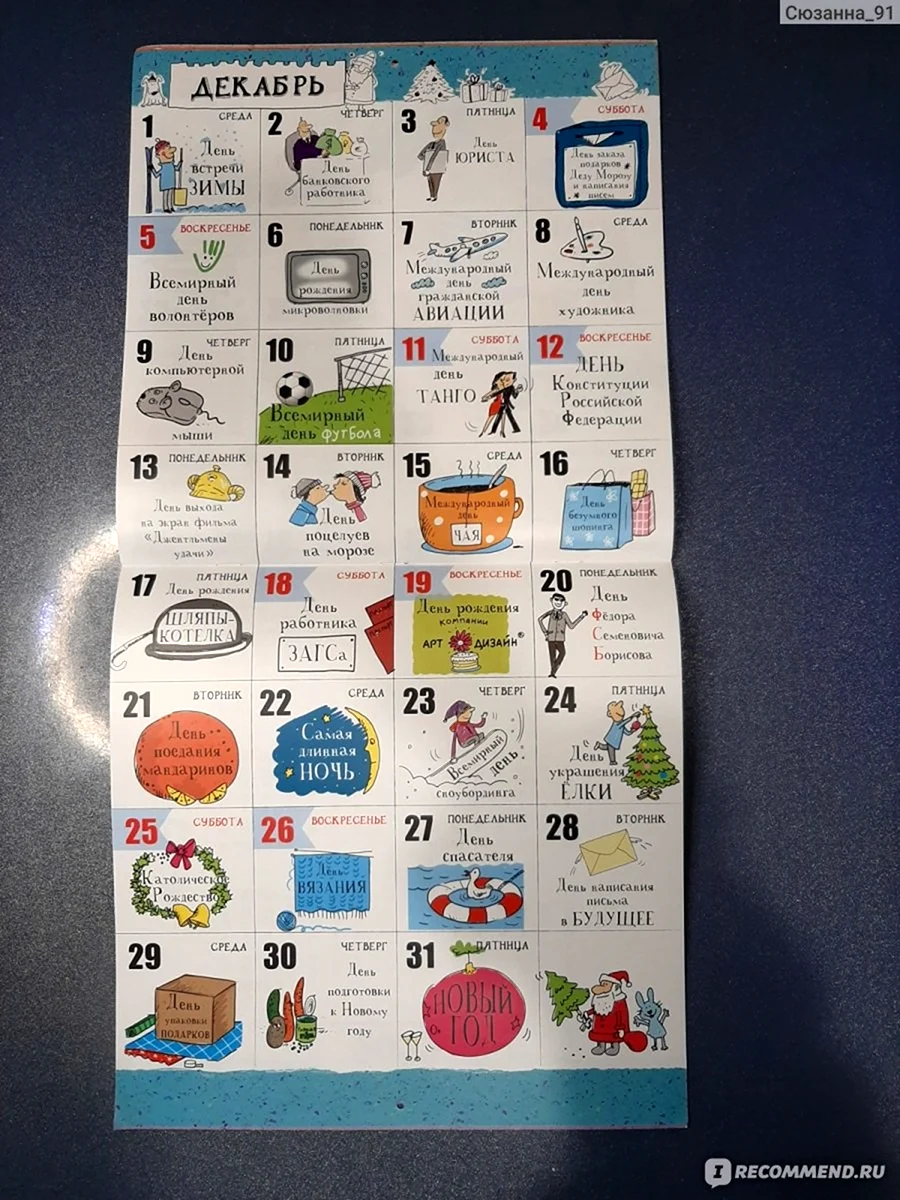 Сюзанна_91
ДЕКАБРЬ
1
СРЕДА
День
встречи
ЗИМЫ
2
ЧЕТВЕРГ
День
банковского
работника
3
ПЯТНИЦА
День
ЮРИСТА
4
СУББОТА
День заказа
подарков
Деду Морозу
и написания
писем
5
ВОСКРЕСЕНЬЕ
Всемирный
день
волонтёров
6
ПОНЕДЕЛЬНИК
День
рождения
микроволновки
7
ВТОРНИК
Международный
день
гражданской
АВИАЦИИ
8
СРЕДА
Международный
день
художника
9
ЧЕТВЕРГ
День
компьютерной
мыши
10
ПЯТНИЦА
Всемирный
день футбола
11
СУББОТА
Международный
день
ТАНГО
12
ВОСКРЕСЕНЬЕ
ДЕНЬ
Конституции
Российской
Федерации
13
ПОНЕДЕЛЬНИК
День выхода
на экран фильма
«Джентльмены
удачи»
14
ВТОРНИК
День
поцелуев
на морозе
15
СРЕДА
Международный
день
ЧАЯ
16
ЧЕТВЕРГ
День
безумного
шопинга
17
ПЯТНИЦА
День рождения
ШЛЯПЫ-
КОТЕЛКА
18
СУББОТА
День
работника
ЗАГСа
19
ВОСКРЕСЕНЬЕ
День рождения
компании
АРТ ДИЗАЙН®
20
ПОНЕДЕЛЬНИК
День
Фёдора
Семеновича
Борисова
21
ВТОРНИК
День
поедания
мандаринов
22
СРЕДА
Самая
длинная
НОЧЬ
23
ЧЕТВЕРГ
Всемирный
день
сноубординга
24
ПЯТНИЦА
День
украшения
ЁЛКИ
25
СУББОТА
Католическое
Рождество
26
ВОСКРЕСЕНЬЕ
День
ВЯЗАНИЯ
27
ПОНЕДЕЛЬНИК
День
спасателя
28
ВТОРНИК
День написания
письма
в БУДУЩЕЕ
29
СРЕДА
День
упаковки
ПОДАРКОВ
30
ЧЕТВЕРГ
День
подготовки
к Новому
году
31
ПЯТНИЦА
НОВЫЙ
ГОД
IRECOMMEND.RU